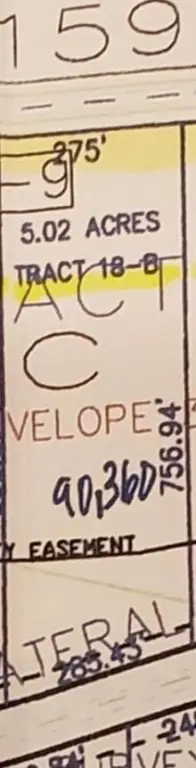 159
275'
-9
5.02 ACRES
TRACT 18-B
ACT
C
VELOPE
756.94'
90,360
Y EASEMENT
ATERAL
285.45'